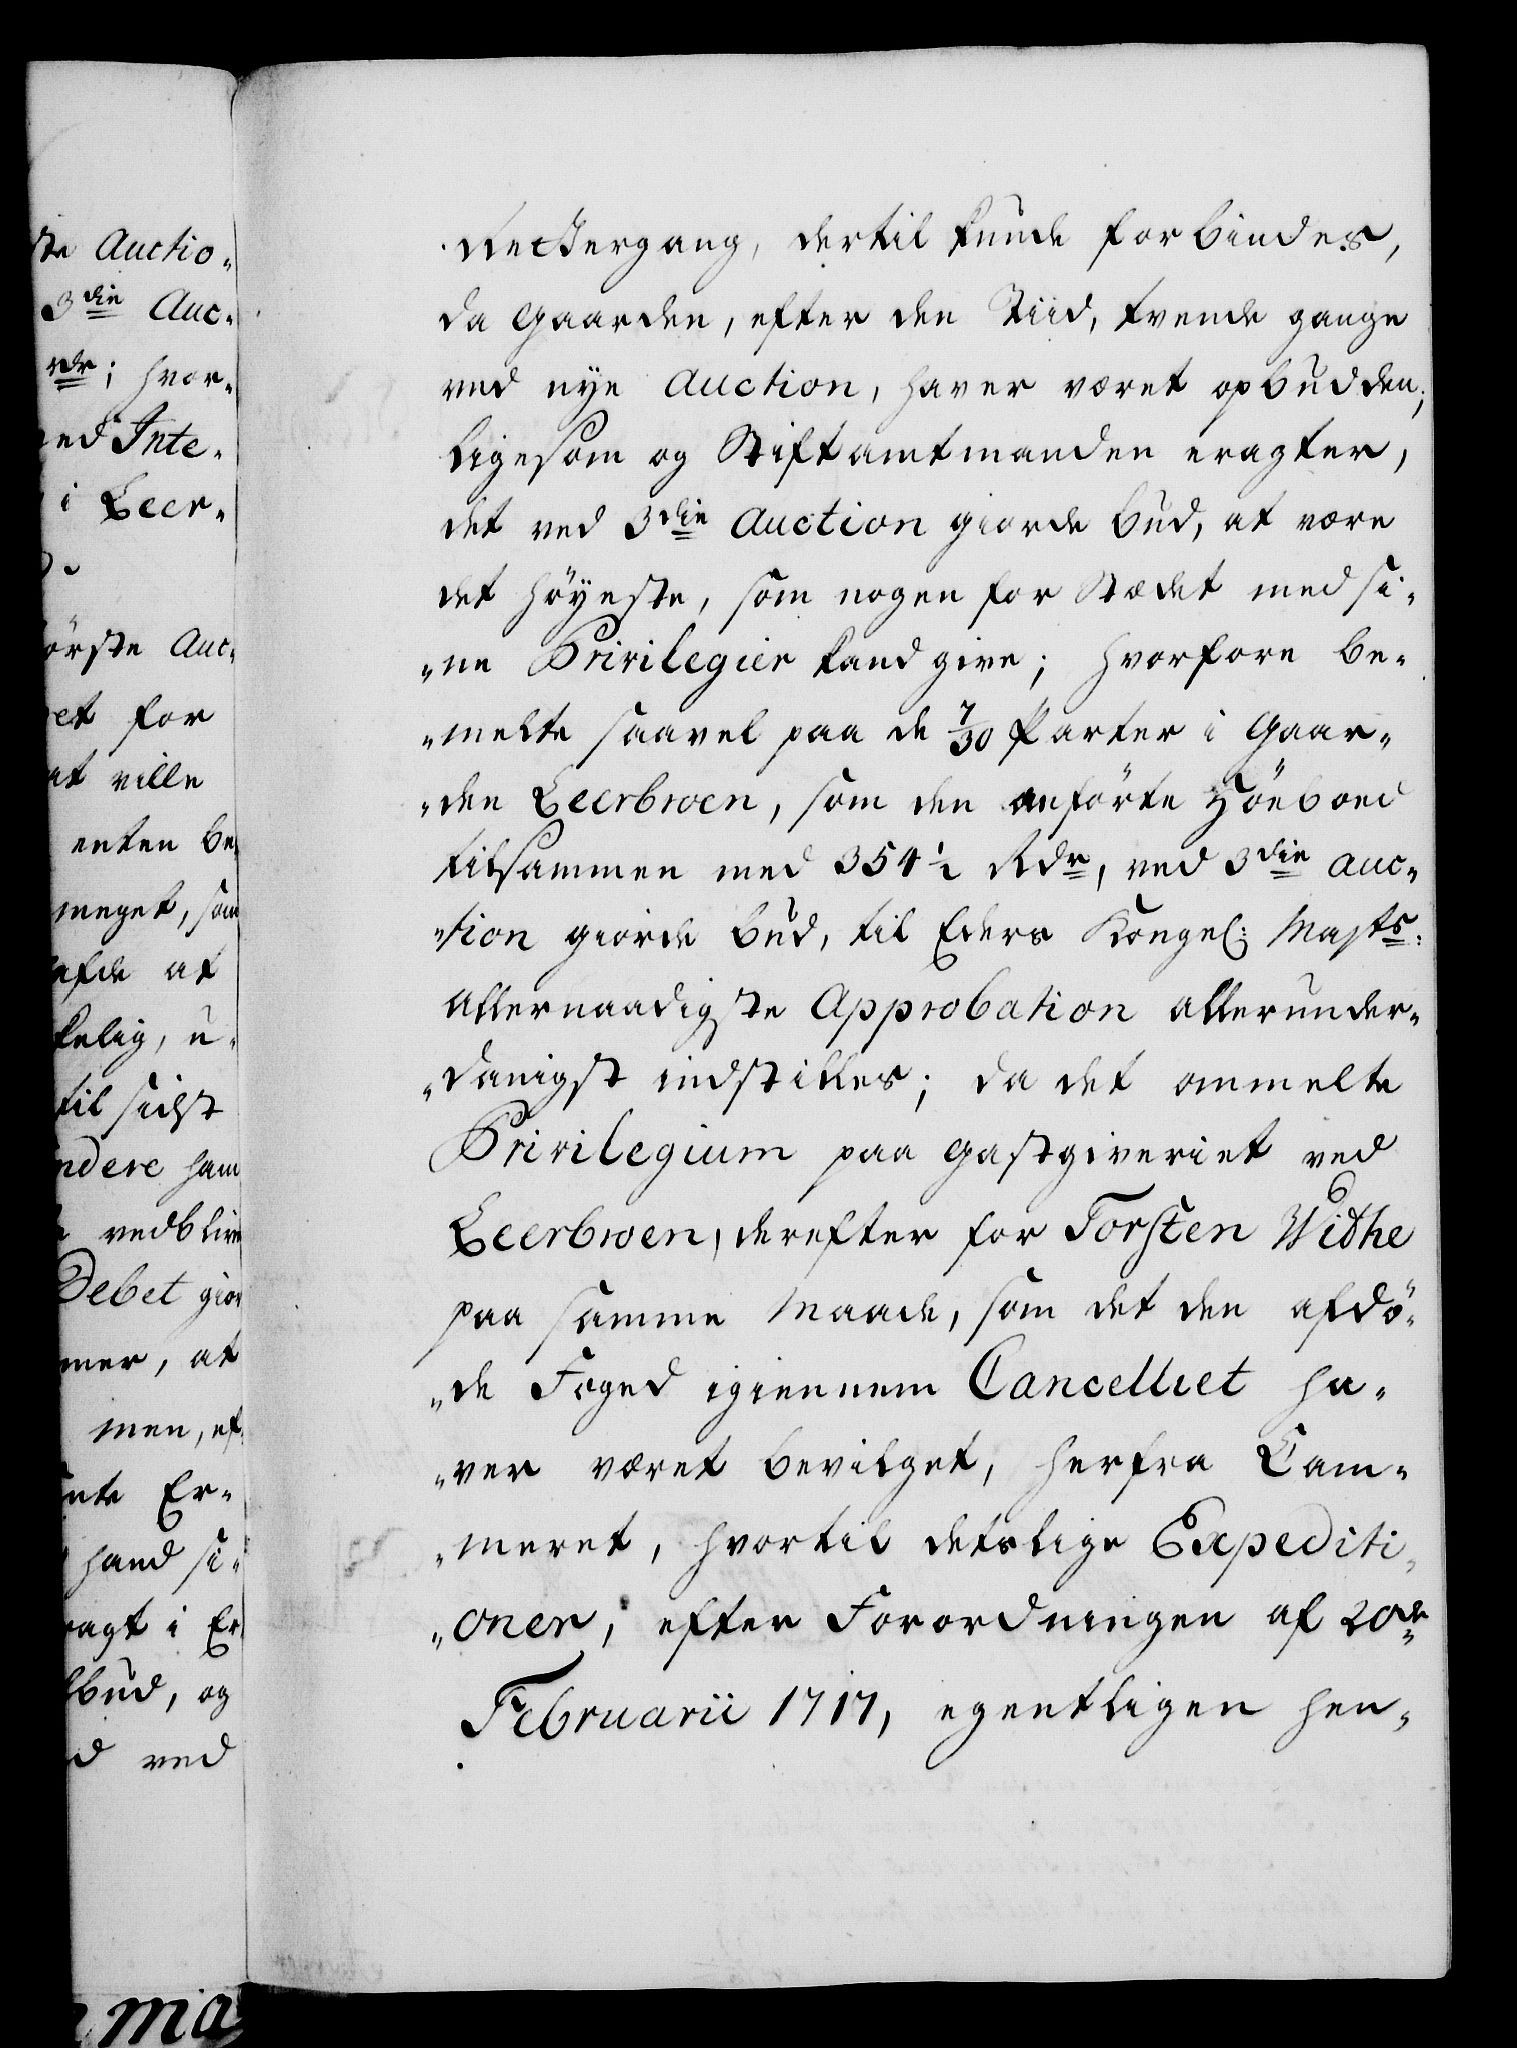 ste Auctio-
3die Auc-
rdr; hvor-
ed Inte-
i Leer-
örste Auc-
et for
at ville
enten be
meget, som
afde at
kelig, u-
til sidst
ndere ham
vedblive
Debet gior
mer, at
men, ef-
nte Er-
hand si-
ragt i Er
bud, og
d ved
ma
Rettergang, dertil kunde forbindes,
da Gaarden, efter den Tiid, tvende gange
ved nye Auction, haver været opbudden;
ligesom og Stiftamtmanden eragter,
det ved 3die Auction giorde bud, at være
det höyeste, som nogen for Stædet med si-
-ne Privilegier kand give; hvorfore be-
-melte saavel paa de 7/30 Parter i Gaar-
-den Leerbroen, som den anförte Höeboed
tilsammen med 354 1/2 Rdr, ved 3die Auc-
-tion giorde bud, til Eders Kongel: Majts.
Allernaadigste Approbation allerunder-
-danigst indstilles; da det ommelte
Privilegium paa Gastgiveriet ved
Leerbroen, derefter for Torsten Widhe
paa samme Maade, som det den afdö-
-de Foged igiennem Cancelliet ha-
-ver været bevilget, herfra Cam-
-meret, hvortil detslige Expediti-
-oner, efter Forordningen af 20de
Februarii 1717, egentligen hen-